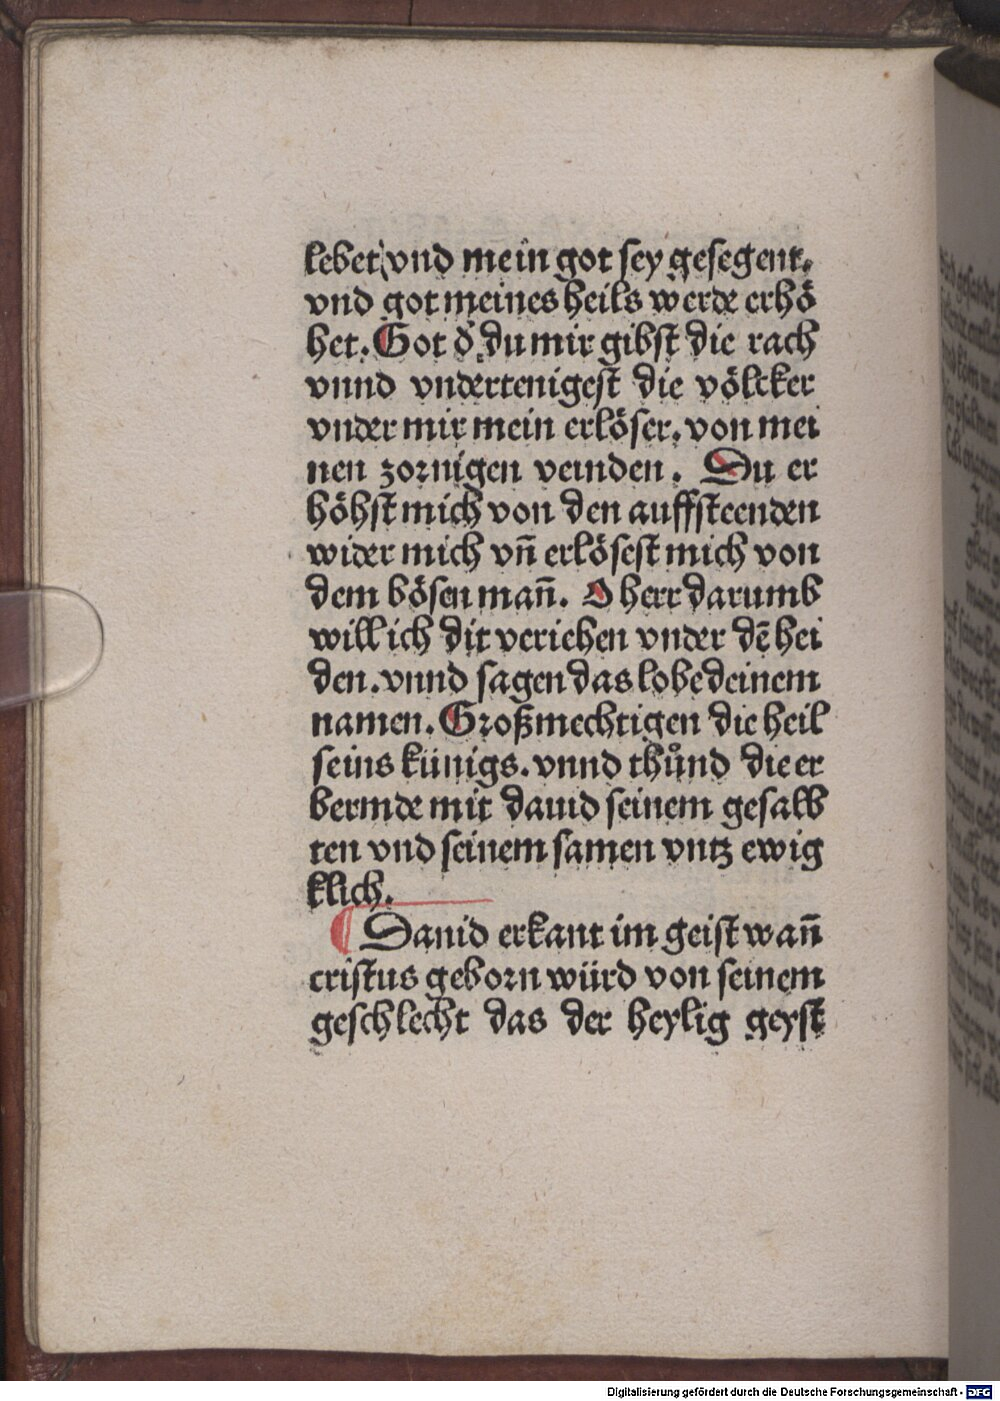 lebet vnd mein got sey gesegent.
vnd got meines heils werde erhö
het. Got d̕ du mir gibst die rach
vnnd vndertenigest die völcker
vnder mir mein erlöser. von mei
nen zornigen veinden. Du er
höhst mich von den auffsteenden
wider mich vn̄ erlösest mich von
dem bösen man̄. O herr darumb
will ich dir veriehen vnder dē hei
den. vnnd sagen das lobe deinem
namen. Großmechtigen die heil
seins künigs. vnnd thůnd die er
bermde mit dauid seinem gesalb
ten vnd seinem samen vntz ewig
klich.
¶ Dauid erkant im geist wan̄
cristus geborn würd von seinem
geschlecht das der heylig geyst
Digitalisierung gefördert durch die Deutsche Forschungsgemeinschaft - DFG